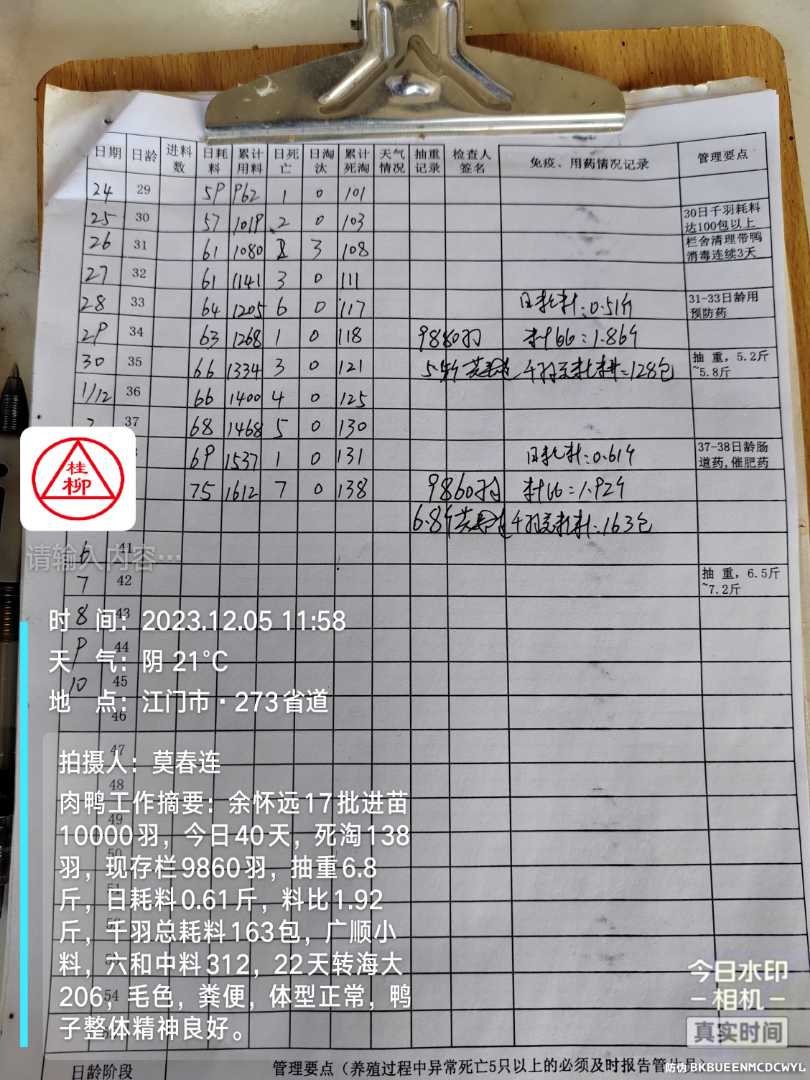 日期 日龄 进料数 日耗料 累计用料 日死亡 日淘汰 累计死淘 天气情况 抽重记录 检查人签名 免疫、用药情况记录 管理要点
24 29 59 962 1 0 101
25 30 57 1019 2 0 103 30日千羽耗料达100包以上
26 31 61 1080 2 3 108 栏舍清理带鸭消毒连续3天
27 32 61 1141 3 0 111
28 33 64 1205 6 0 117 日耗料:0.51斤 31-33日龄用预防药
29 34 63 1268 1 0 118 9880羽 料比:1.86斤
30 35 66 1334 3 0 121 5.4斤 莫春连 千羽总耗料:128包 抽重,5.2斤~5.8斤
1/12 36 66 1400 4 0 125
37 68 1468 5 0 130
69 1537 1 0 131 日耗料:0.61斤 37-38日龄肠道药,催肥药
75 1612 7 0 138 9860羽 料比:1.92斤
6.8斤 莫春连 千羽总耗料:163包
桂柳
请输入内容…
6 41
7 42 抽重,6.5斤~7.2斤
8 43
9 44
10 45
46
47
48
49
54
时 间:2023.12.05 11:58
天 气:阴 21℃
地 点:江门市·273省道
拍摄人:莫春连
肉鸭工作摘要:余怀远17批进苗
10000羽,今日40天,死淘138
羽,现存栏9860羽,抽重6.8
斤,日耗料0.61斤,料比1.92
斤,千羽总耗料163包,广顺小
料,六和中料312,22天转海大
206,毛色,粪便,体型正常,鸭
子整体精神良好。
今日水印
相机
真实时间
日龄阶段 管理要点(养殖过程中异常死亡5只以上的必须及时报告管
防伪 BKBUEENMCDCWYL